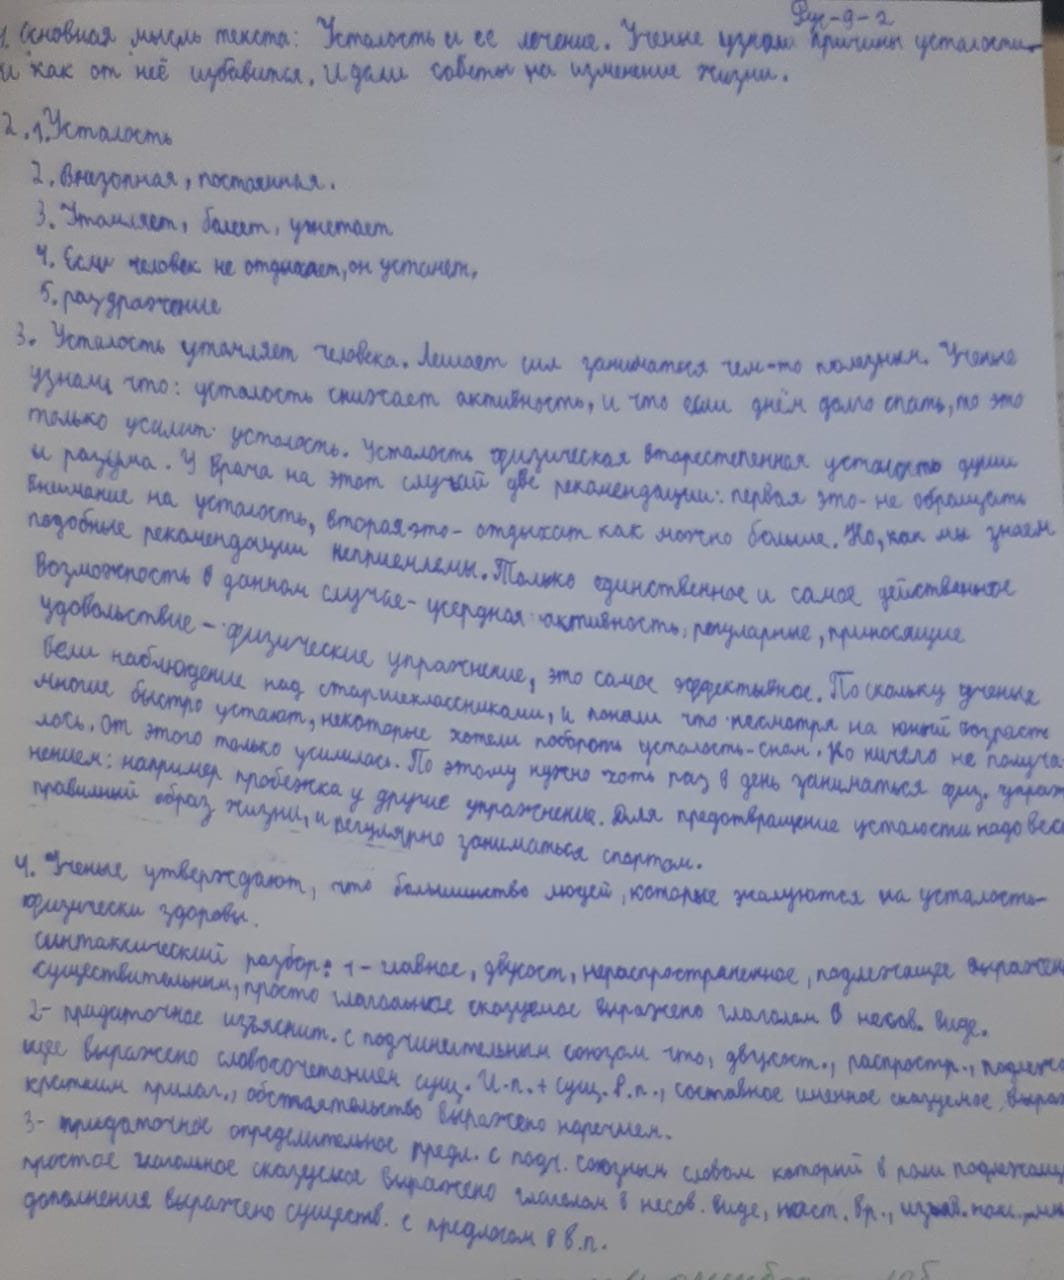 Рус-9-2
1. Основная мысль текста: Усталость и ее лечение. Ученые узнали причины усталости
и как от неё избавится. И дали советы на изменения жизни.
2. 1. Усталость
2. Внезапная, постоянная.
3. Утомляет, болеет, угнетает
4. Если человек не отдыхает, он устанет.
5. раздражение
3. Усталость утомляет человека. Лешает сил заниматься чем-то полезным. Ученые
узнали, что: усталость снижает активность, и что если днём долго спать, то это
только усилит усталость. Усталость физическая вторестепенная усталость души
и разума. У врача на этот случай две рекомендации: первая это- не обращать
внимание на усталость, вторая это- отдыхат как можно больше. Но, как мы знаем
подобные рекомендации неприемлемы. Только единственное и самое действенное
возможность в данном случае- усердная активность, регулярные, приносящие
удовольствие - физические упражнение, это самое эффективное. По скольку ученые
вели наблюдение над старшеклассниками, и поняли что несмотря на юный возрасте
многие быстро устают, некоторые хотели побороть усталость-сном. Но ничего не получа-
лось. От этого только усилилась. По этому нужно хоть раз в день заниматься физ. упраж
нением: например пробежка у другие упражнение. Для предотвращение усталости надо вес
правильный образ жизни, и регулярно заниматься спортом.
4. Ученые утверждают, что большинство людей, которые жалуются на усталость-
физически здоровы.
синтаксический разбор: 1- главное, двусост, нераспространенное, подлежащее выражен
существительным, просто глагольное сказуемое выражено глаголом в несов. виде.
2- придаточное изъяснит. с подчинительным союзом что, двусост., распростр., подлежа
щее выражено словосочетанием сущ. И.п. + сущ. Р.п., составное именное сказуемое, выраж
кратким прилаг., обстоятельство выражено наречием.
3- придаточное определительное предл. с подч. союзным словом который в роли подлежащ
простое глагольное сказуемое выражено глаголом в несов. виде, наст. вр., изъяв. накл., мн
дополнения выражено существ. с предлогом в В.п.